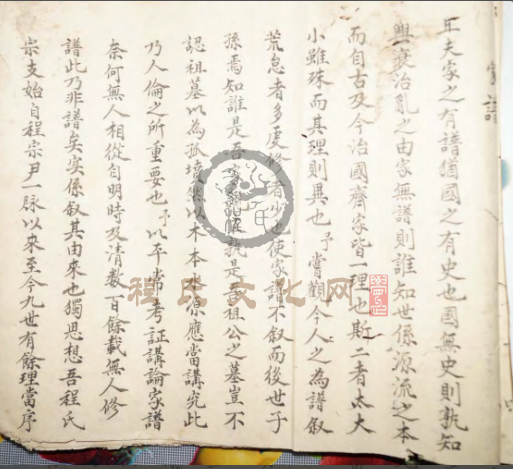 家譜
且夫家之有譜猶國之有史也國無史則孰知
興衰治亂之由家無譜則誰知世係源流之本
而自古及今治國齊家皆一理也斯二者太大
小雖殊而其理則異也予嘗觀今人之為譜叙
荒怠者多虔修者少也使家譜不叙而後世子
孫焉知誰是吾孰是吾祖公之墓豈不
認祖墓以為孤墳以木本應當講究此
乃人倫之所重要也予以平常考証講論家譜
奈何無人相從自明時及清数百餘載無人修
譜此乃非譜矣实係叙其由來也獨思想吾程氏
宗支始自程宗尹一脉以來至今九世有餘理當序
程氏文化网